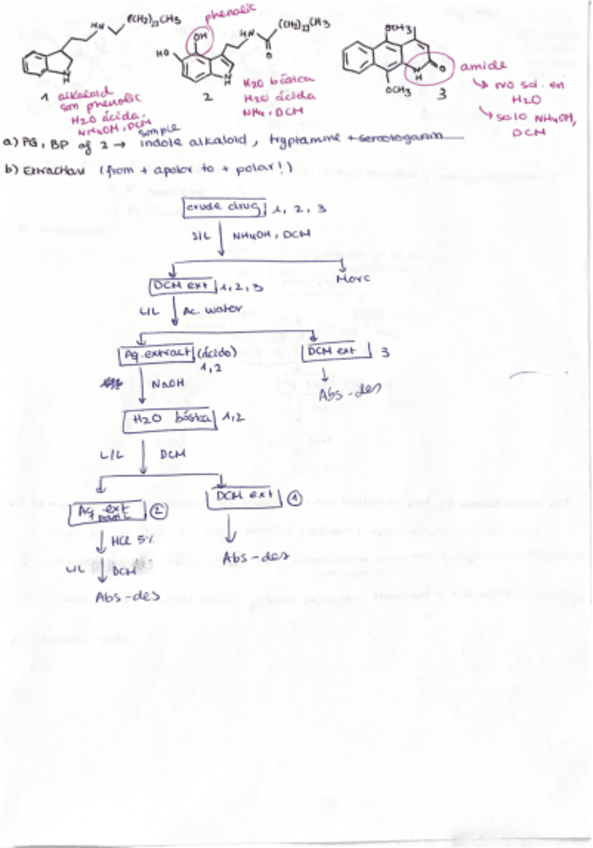 phenolic
HN (CH2)23CH3
OH HN (CH2)23CH3
HO O
N H
N H
OCH3
O
N H
OCH3
1 alkaloid
non phenolic
H2O ácida,
NH4OH, DCM
2
H2O básica
H2O ácida
NH4, DCM
3
amide
↳ no sol. en
H2O
↳ solo NH4OH,
DCM
simple
a) PG, BP of 2 → indole alkaloid, tryptamine +
b) Extraction (from + apolar to + polar!)
crude drug 1, 2, 3
S/L NH4OH, DCM
DCM ext 1, 2, 3 Marc
L/L Ac. water
Aq. extract (ácido) 1,2 DCM ext 3
NaOH Abs-des
H2O básica 1,2
L/L DCM
Aq. ext 2 DCM ext 1
HCl 5% Abs-des
L/L DCM
Abs-des